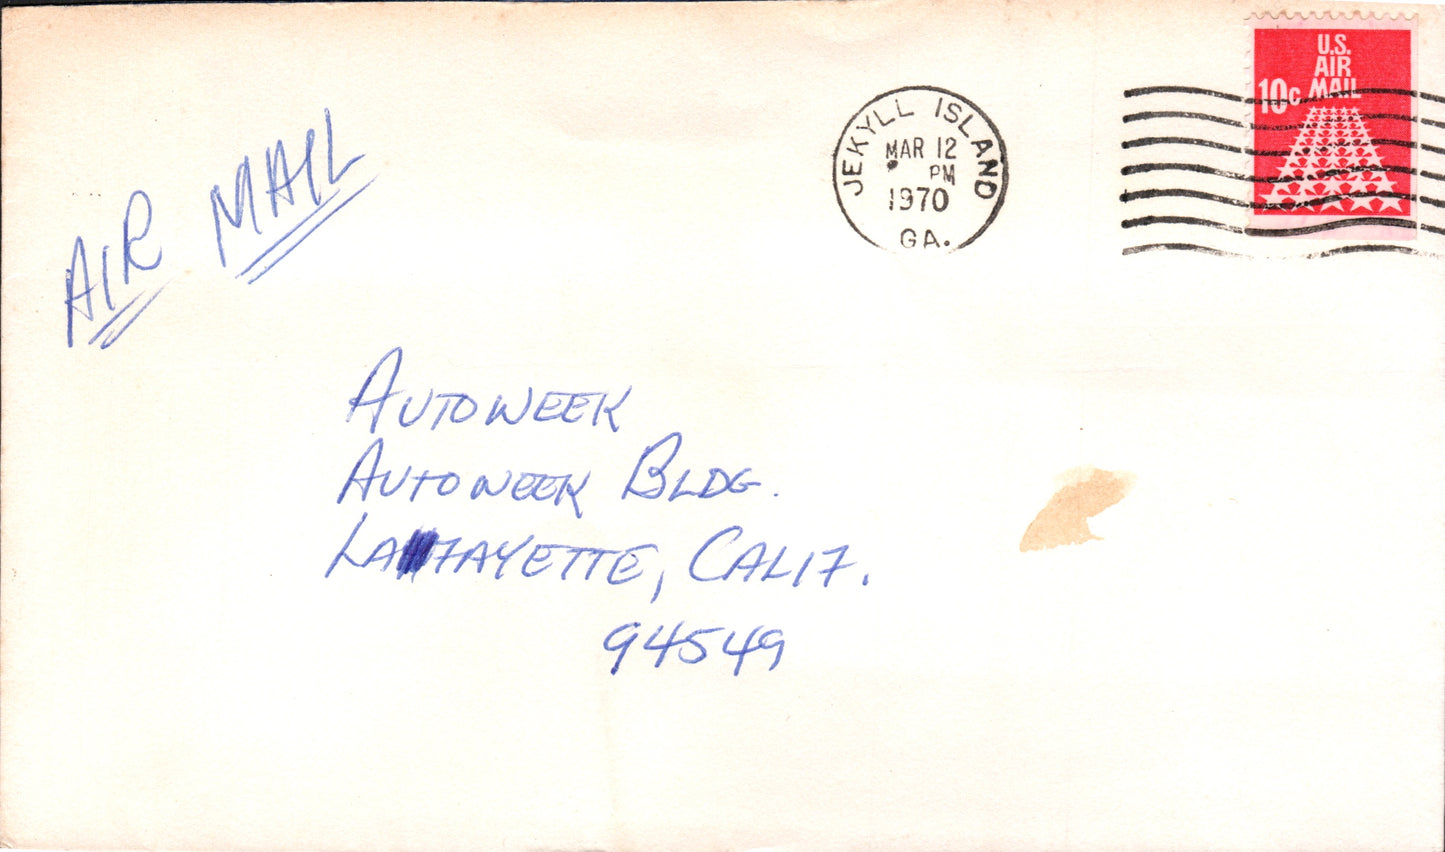 AIR MAIL
JEKYLL ISLAND
MAR 12
PM
1970
GA.
U.S.
AIR
MAIL
10c
AUTOWEEK
AUTOWEEK BLDG.
LAFAYETTE, CALIF.
94549